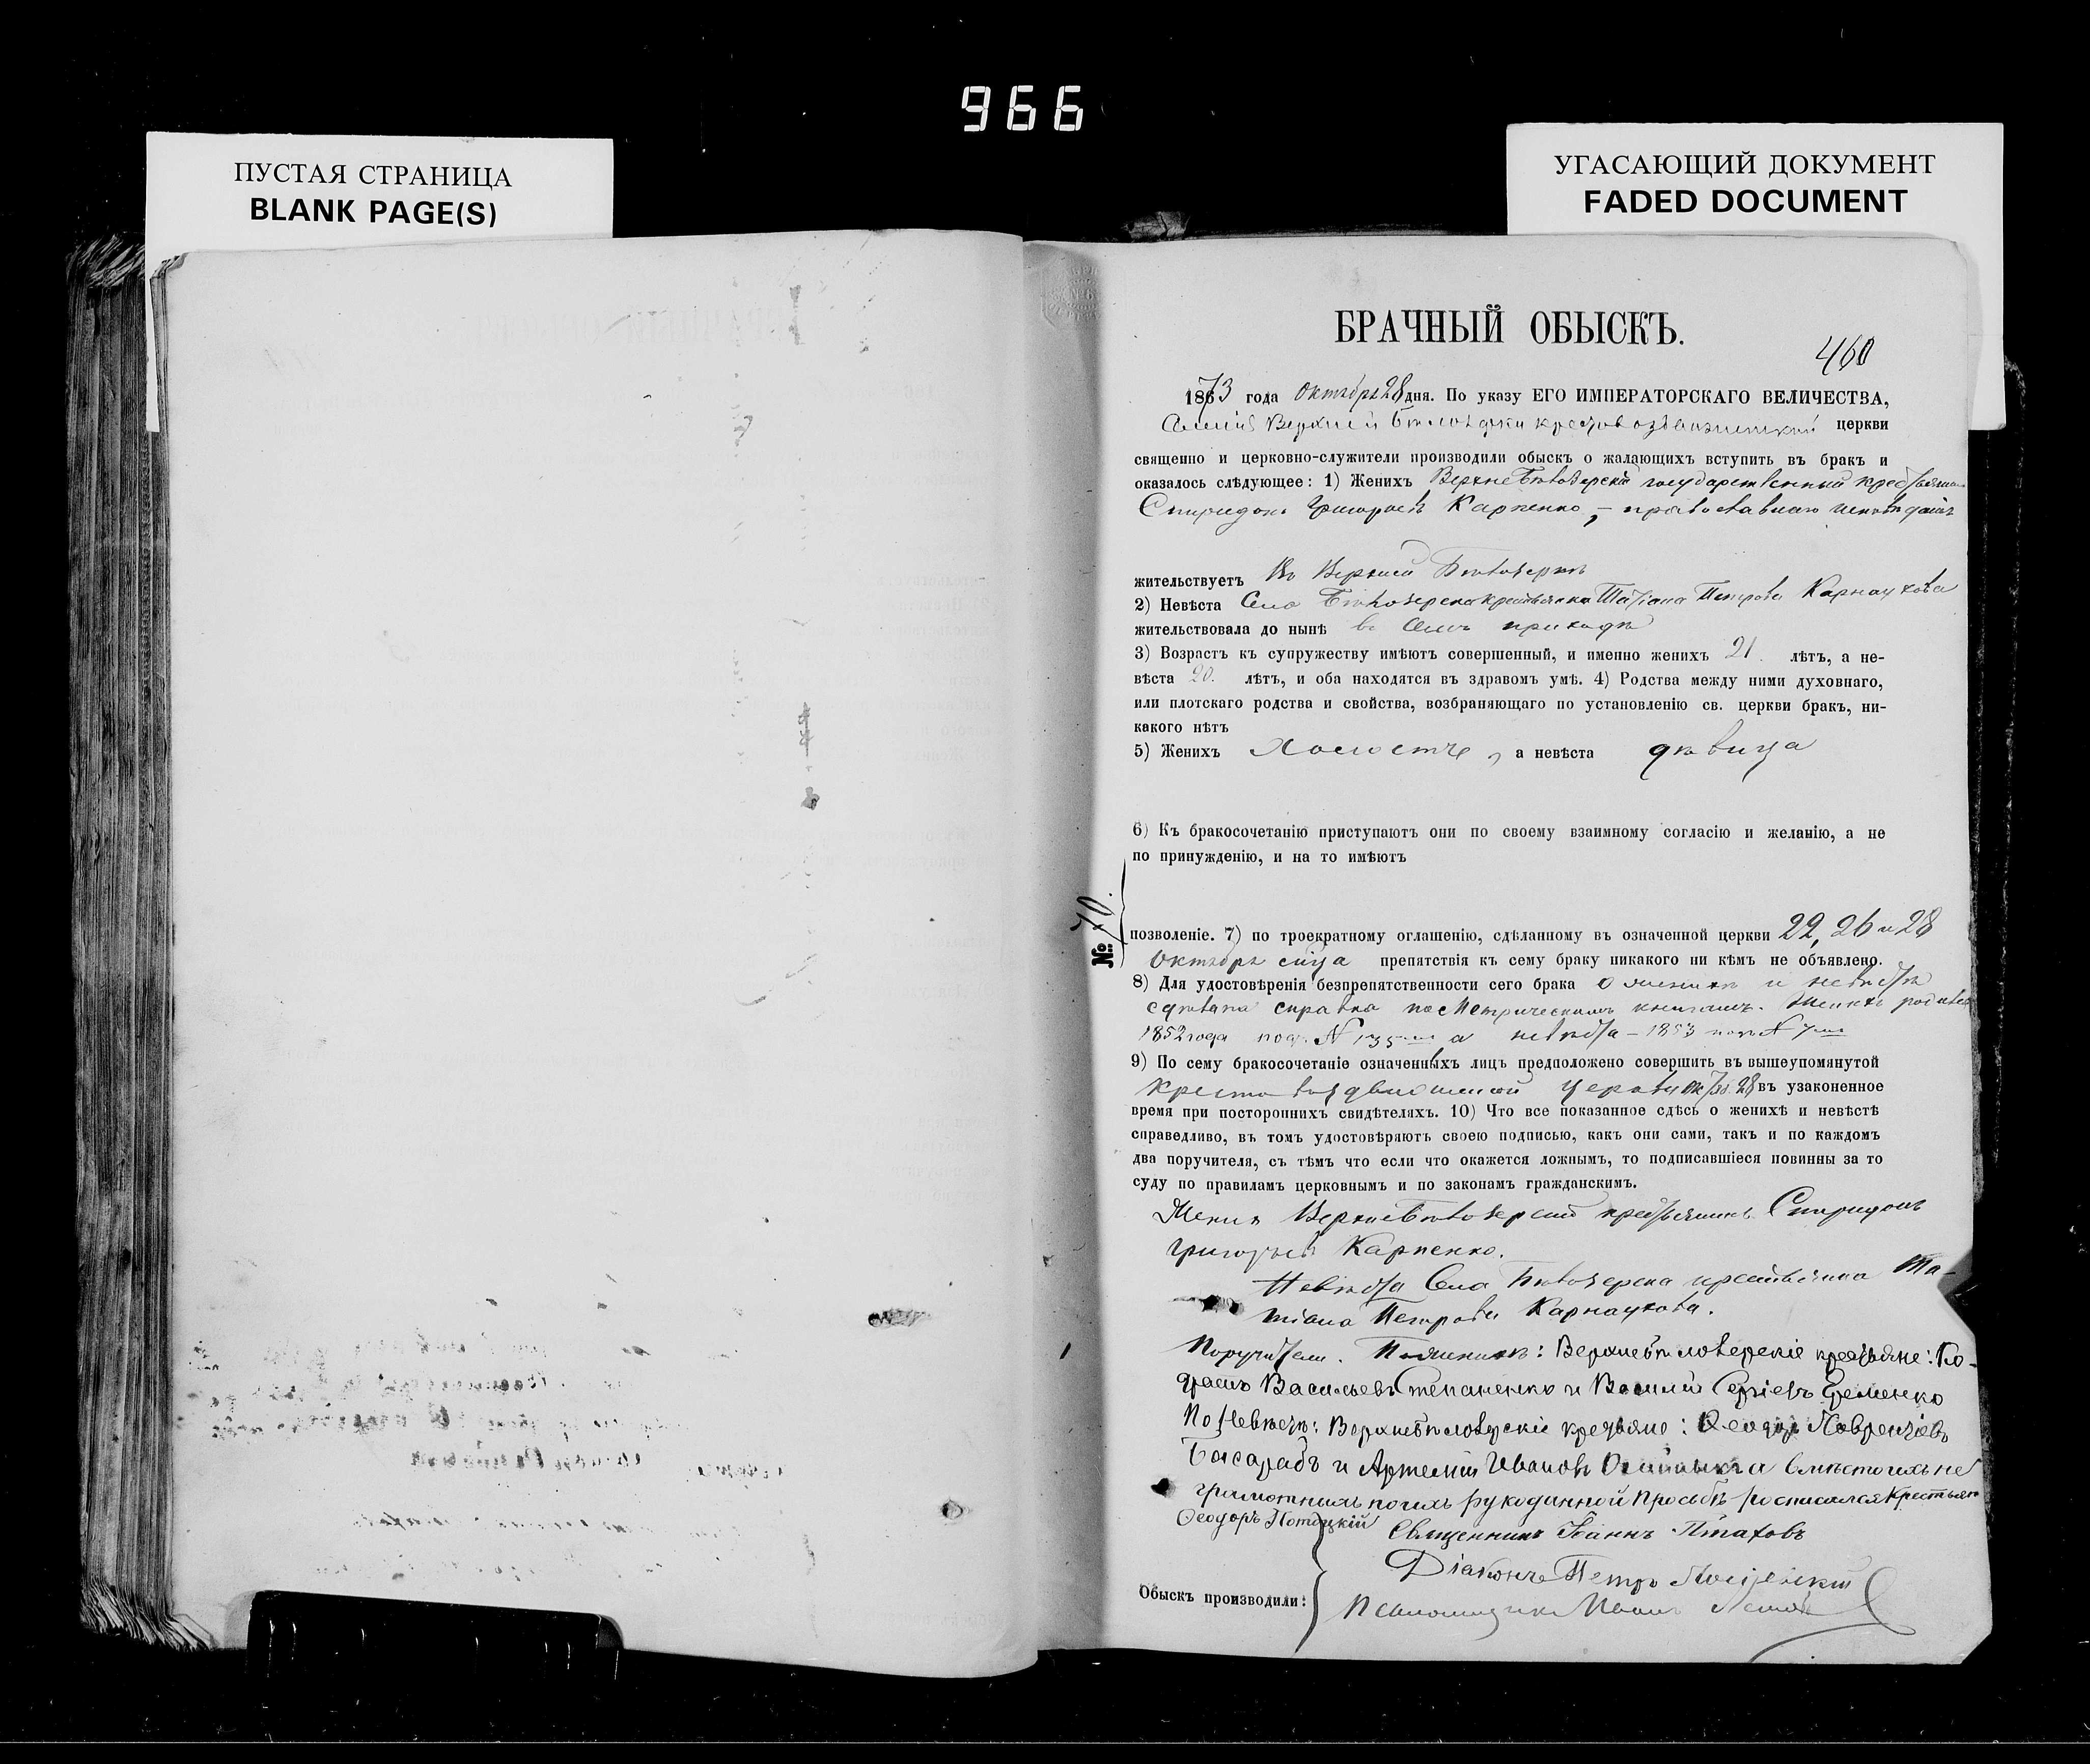 966
ПУСТАЯ СТРАНИЦА
BLANK PAGE(S)
УГАСАЮЩИЙ ДОКУМЕНТ
FADED DOCUMENT
БРАЧНЫЙ ОБЫСКЪ.
460
1873 года Октября 28 дня. По указу ЕГО ИМПЕРАТОРСКАГО ВЕЛИЧЕСТВА,
Верхней церкви
священно и церковно-служители производили обыскъ о жалающихъ вступить въ бракъ и
оказалось слѣдующее: 1) Женихъ Верхнебѣлозерскій государственный крестьянинъ
Спиридонъ Григорьевъ Карпенко, – православнаго исповѣданія
жительствуетъ Въ Верхней Бѣлозеркѣ
2) Невѣста Села Бѣлозерска крестьянка Татіана Петрова Карнаухова
жительствовала до нынѣ въ семъ приходѣ
3) Возрастъ къ супружеству имѣютъ совершенный, и именно женихъ 21. лѣтъ, а не-
вѣста 20. лѣтъ, и оба находятся въ здравомъ умѣ. 4) Родства между ними духовнаго,
или плотскаго родства и свойства, возбраняющаго по установленію св. церкви бракъ, ни-
какого нѣтъ
5) Женихъ Холостъ, а невѣста дѣвица
6) Къ бракосочетанію приступаютъ они по своему взаимному согласію и желанію, а не
по принужденію, и на то имѣютъ
№ 70.
позволеніе. 7) по троекратному оглашенію, сдѣланному въ означенной церкви 22, 26 и 28
Октября сего препятствія къ сему браку никакого ни кѣмъ не объявлено.
8) Для удостовѣренія безпрепятственности сего брака о женихѣ и невѣстѣ
сдѣлана справка по Метрическимъ книгамъ. Женихъ родился
1852 года под. N 135 а невѣста – 1853 подъ N 7
9) По сему бракосочетаніе означенныхъ лицъ предположено совершить въ вышеупомянутой
Крестовоздвиженской церкви 28 въ узаконенное
время при постороннихъ свидѣтеляхъ. 10) Что все показанное сдѣсь о женихѣ и невѣстѣ
справедливо, въ томъ удостовѣряютъ своею подписью, какъ они сами, такъ и по каждомъ
два поручителя, съ тѣмъ что если что окажется ложнымъ, то подписавшіеся повинны за то
суду по правиламъ церковнымъ и по законамъ гражданскимъ.
Женихъ Верхнебѣлозерскій крестьянинъ Спиридонъ
Григорьевъ Карпенко.
Невѣста Села Бѣлозерска крестьянка Та-
тіана Петрова Карнаухова.
Поручители. По женихѣ: Верхнебѣлозерскіе крестьяне: Ко-
Васильевъ Степаненко и Василій Сергіевъ Еременко
По Невѣстѣ: Верхнебѣлозерскіе крестьяне: Ѳеодоръ Лаврентіевъ
Басарабъ и Артемій Ивановъ а вмѣсто ихъ не
грамотныхъ по ихъ рукоданной просьбѣ росписался Крестьян
Ѳеодоръ Потоцкій
Священникъ Іоаннъ Птаховъ
Діаконъ Петръ
Обыскъ производили:
Псаломщикъ Иванъ